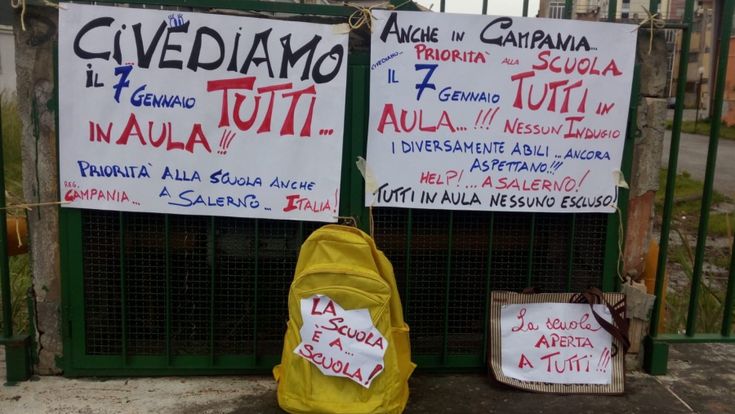 CIVEDIAMO
IL 7 GENNAIO TUTTI...
IN AULA!!!
PRIORITA' ALLA SCUOLA ANCHE
A SALERNO... ITALIA!
REG.
CAMPANIA...
ANCHE IN CAMPANIA...
CIVEDIAMO... PRIORITA' ALLA SCUOLA
IL 7 GENNAIO TUTTI IN
AULA...!!! NESSUN INDUGIO
I DIVERSAMENTE ABILI... ANCORA
ASPETTANO!!!
HELP!... A SALERNO!
TUTTI IN AULA NESSUNO ESCLUSO!
LA
SCUOLA
È A...
SCUOLA!
La scuola
APERTA
A TUTTI!!!